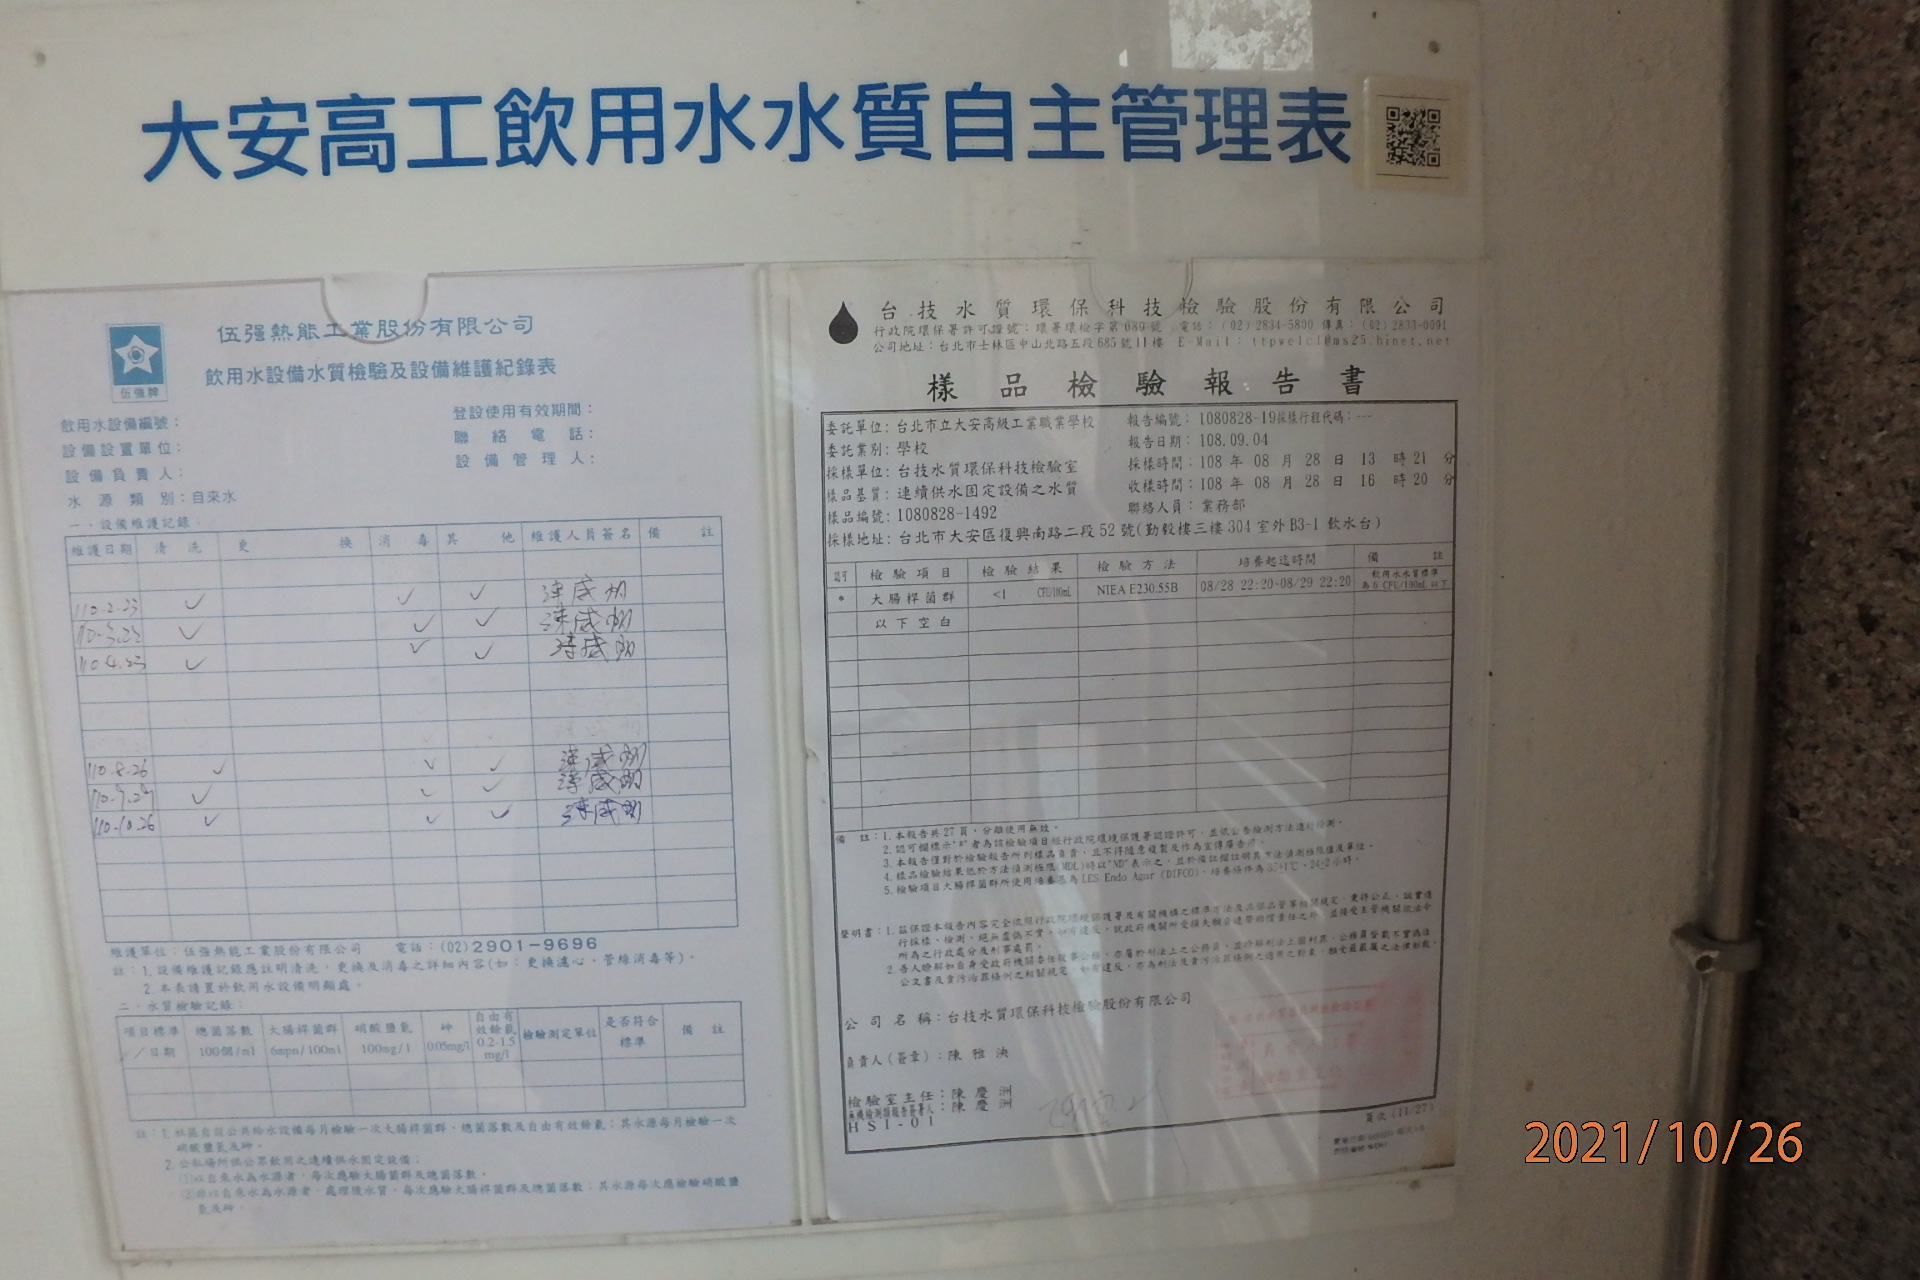 大安高工飲用水水質自主管理表
伍强熱能工業股份有限公司
飲用水設備水質檢驗及設備維護紀錄表
伍強牌
飲用水設備編號：
登設使用有效期間：
設備設置單位：
聯絡電話：
設備負責人：
設備管理人：
水源類別：自來水
一、設備維護記錄：
維護日期 清洗 更換 消毒 其他 維護人員簽名 備註
110.2.23 ✓ ✓ ✓
110.3.23 ✓ ✓ ✓
110.4.23 ✓ ✓ ✓
110.8.26 ✓ ✓ ✓
110.9.24 ✓ ✓ ✓
110.10.26 ✓ ✓ ✓
維護單位：伍强熱能工業股份有限公司 電話：(02)2901-9696
註：1.設備維護記錄應註明清洗，更換及消毒之詳細內容(如：更換濾心、管線消毒等)。
2.本表請置於飲用水設備明顯處。
二、水質檢驗記錄：
項目標準／日期 總菌落數 100個/ml 大腸桿菌群 6mpn/100ml 硝酸鹽氮 100mg/l 砷 0.05mg/l 自由有效餘氯 0.2-1.5 mg/l 檢驗測定單位 是否符合標準 備註
註：1.社區自設公共給水設備每月檢驗一次大腸桿菌群、總菌落數及自由有效餘氯；其水源每月檢驗一次
硝酸鹽氮及砷。
2.公私場所供公眾飲用之連續供水固定設備：
(1)以自來水為水源者，每次應驗大腸桿菌群及總菌落數。
(2)非以自來水為水源者，處理後水質，每次應驗大腸桿菌群及總菌落數；其水源每次應檢驗硝酸鹽
氮及砷。
台技水質環保科技檢驗股份有限公司
行政院環保署許可證號：環署環檢字第089號 電話：(02)2834-5800 傳真：(02)2833-0091
公司地址：台北市士林區中山北路五段685號11樓 E-Mail：ttpwelcl@ms25.hinet.net
樣品檢驗報告書
委託單位：台北市立大安高級工業職業學校
報告編號：1080828-19採樣行程代碼：---
委託業別：學校
報告日期：108.09.04
採樣單位：台技水質環保科技檢驗室
採樣時間：108 年 08 月 28 日 13 時 21 分
樣品基質：連續供水固定設備之水質
收樣時間：108 年 08 月 28 日 16 時 20 分
樣品編號：1080828-1492
聯絡人員：業務部
採樣地址：台北市大安區復興南路二段52號(勤毅樓三樓304室外B3-1飲水台)
認可 檢驗項目 檢驗結果 檢驗方法 培養起迄時間 備註
* 大腸桿菌群 <1 CFU/100mL NIEA E230.55B 08/28 22:20-08/29 22:20 飲用水水質標準為6 CFU/100mL以下
以下空白
備註：1.本報告共27頁，分離使用無效。
2.認可欄標示"*"者為該檢驗項目經行政院環境保護署認證許可，並依公告檢測方法進行檢測。
3.本報告僅對於檢驗報告所列樣品負責，且不得隨意複製及作為宣傳廣告用。
4.樣品檢驗結果低於方法偵測極限(MDL)時以"ND"表示之，並於備註欄註明其方法偵測極限值及單位。
5.檢驗項目大腸桿菌群所使用培養基為LES Endo Agar (DIFCO)，培養條件為35±1℃、24±2小時。
公司名稱：台技水質環保科技檢驗股份有限公司
負責人(簽章)：陳雅泱
檢驗室主任：陳慶洲
無機檢測類報告簽署人：陳慶洲
HSI-01
頁次(11/27)
2021/10/26